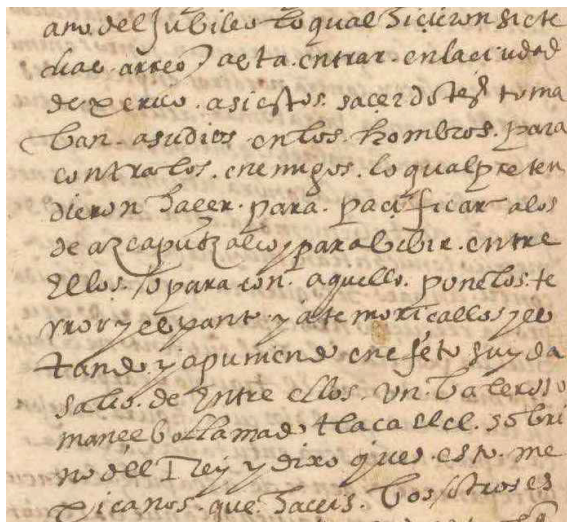 ano del Jubileo lo qual hicieron siete
dias arreo hasta entrar en la ciudad
de xerico. asi estos. sacerdotes toma
ban. a su dios en los. hombros. para
contra los. enemigos. lo qual preten
dieron hacer. para. pacificar a los
de azcaputzalco, y para bibir. entre
Ellos. o para con. aquello. ponelos. te
rror y espanto y atemoricallos y es
tando y a puniendo en efeto su yda
salio. de Entre ellos. Vn. baleroso
mancebo llamado tlacaelel. sobri
no del Rey y dixo ques. esto. me
xicanos. que haceis. bosotros es